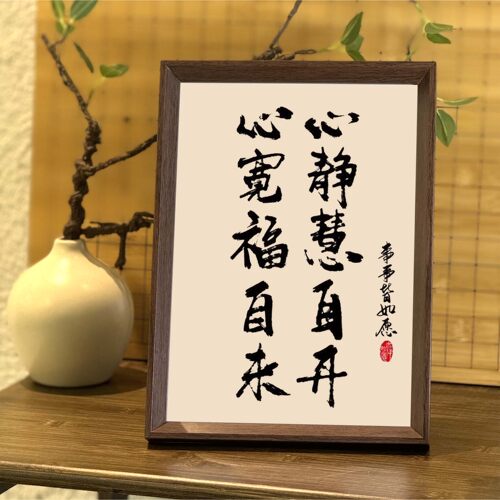 心静慧自开
心宽福自来
事事皆如愿